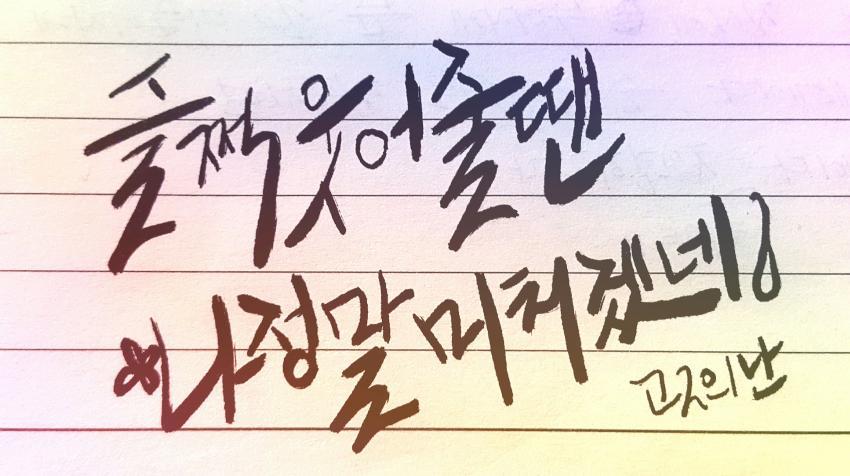 슬쩍 웃어줄땐
나 정말 미치겠네
고고의 난